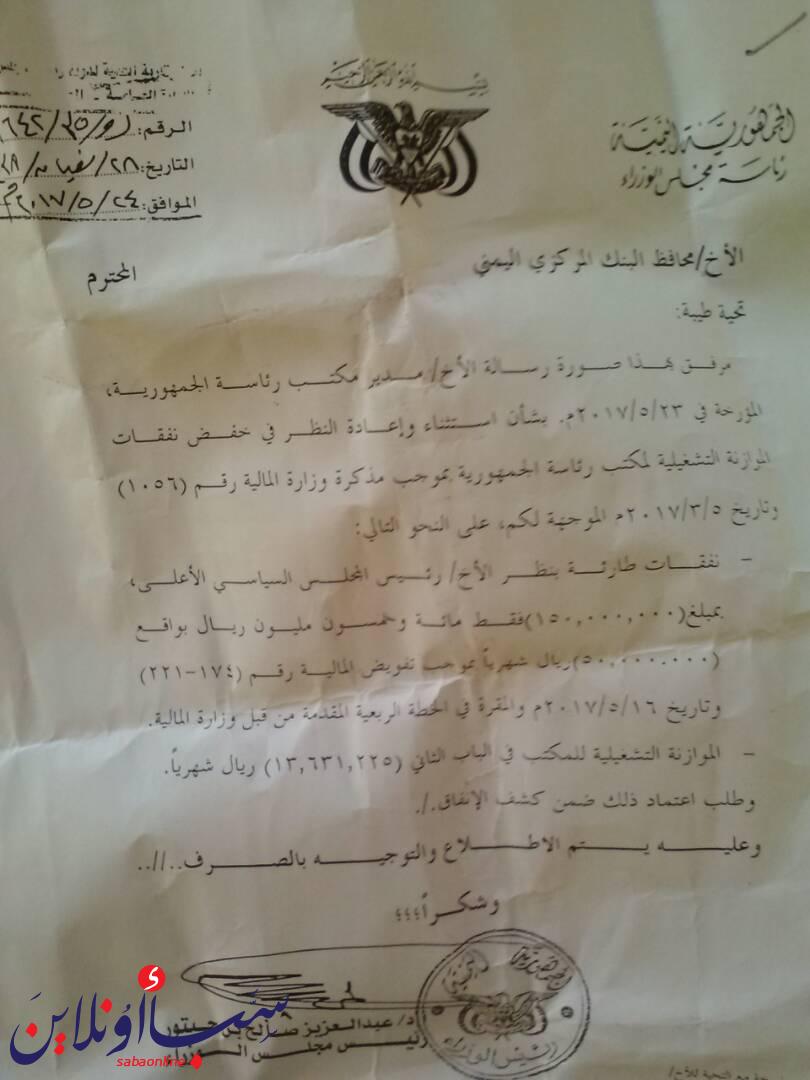 بسم الله الرحمن الرحيم
الجمهورية اليمنية
رئاسة مجلس الوزراء
الرقم: ر و/٣٥/٦٤٢
التاريخ: ٢٨/شعبان/٣٨
الموافق: ٢٠١٧/٥/٢٤م
الأخ/محافظ البنك المركزي اليمني المحترم
تحية طيبة:
مرفق بهذا صورة رسالة الأخ/ مدير مكتب رئاسة الجمهورية،
المؤرخة في ٢٠١٧/٥/٢٣م. بشأن استثناء وإعادة النظر في خفض نفقات
الموازنة التشغيلية لمكتب رئاسة الجمهورية بموجب مذكرة وزارة المالية رقم (١٠٥٦)
وتاريخ ٢٠١٧/٣/٥م الموجهة لكم، على النحو التالي:
– نفقات طارئة بنظر الأخ/ رئيس المجلس السياسي الأعلى،
بمبلغ(١٥٠,٠٠٠,٠٠٠)فقط مائة وخمسون مليون ريال بواقع
(٥٠,٠٠٠.٠٠٠)ريال شهرياً بموجب تفويض المالية رقم (١٧٤-٢٢١)
وتاريخ ٢٠١٧/٥/١٦م والمقرة في الخطة الربعية المقدمة من قبل وزارة المالية.
– الموازنة التشغيلية للمكتب في الباب الثاني (١٣,٦٣١,٢٢٥) ريال شهرياً.
وطلب اعتماد ذلك ضمن كشف الإنفاق./.
وعليه يتم الاطلاع والتوجيه بالصرف..//..
وشكراً؛؛؛
الجمهورية اليمنية
رئيس الوزراء
د/ عبدالعزيز صالح بن حبتور
رئيس مجلس الوزراء
سبأ أونلاين
sabaonline